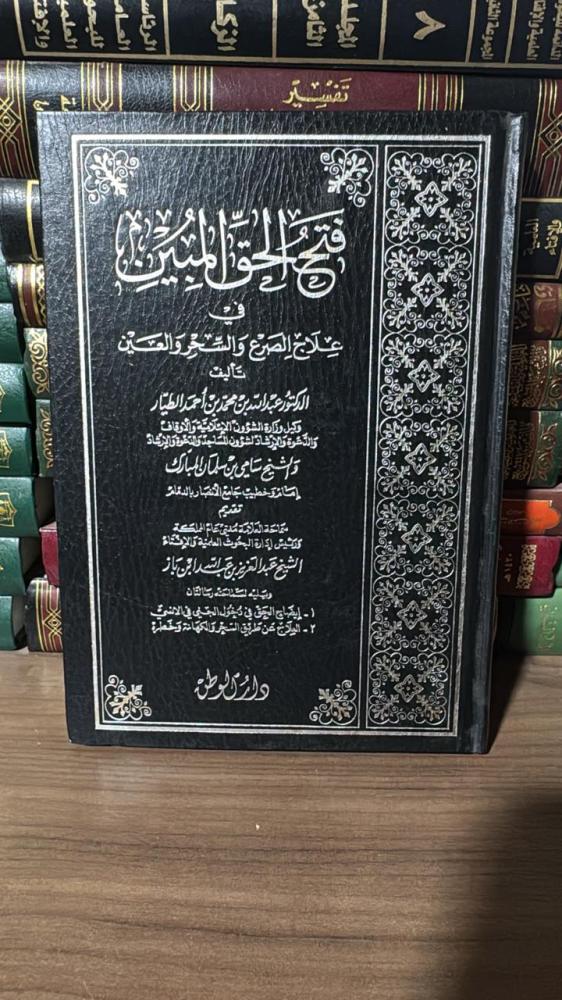 ٨
المجلد
الثامن
الزكاة
تفسير
فتح الحق المبين
في
علاج الصرع والسحر والعين
تأليف
الدكتور عبد الله بن محمد بن أحمد الطيار
وكيل وزارة الشؤون الإسلامية والأوقاف
والدعوة والإرشاد لشؤون المساجد والدعوة والإرشاد
والشيخ سامي بن سلمان المبارك
إمام وخطيب جامع الأنصار بالدمام
تقديم
سماحة العلامة مفتي عام المملكة
ورئيس إدارة البحوث العلمية والإفتاء
الشيخ عبد العزيز بن عبد الله ابن باز
ويليه لسماحته رسالتان
١ - إيضاح الحق في دخول الجني في الانسي
٢ - العلاج عن طريق السحر والكهانة وخطره
دار الوطن